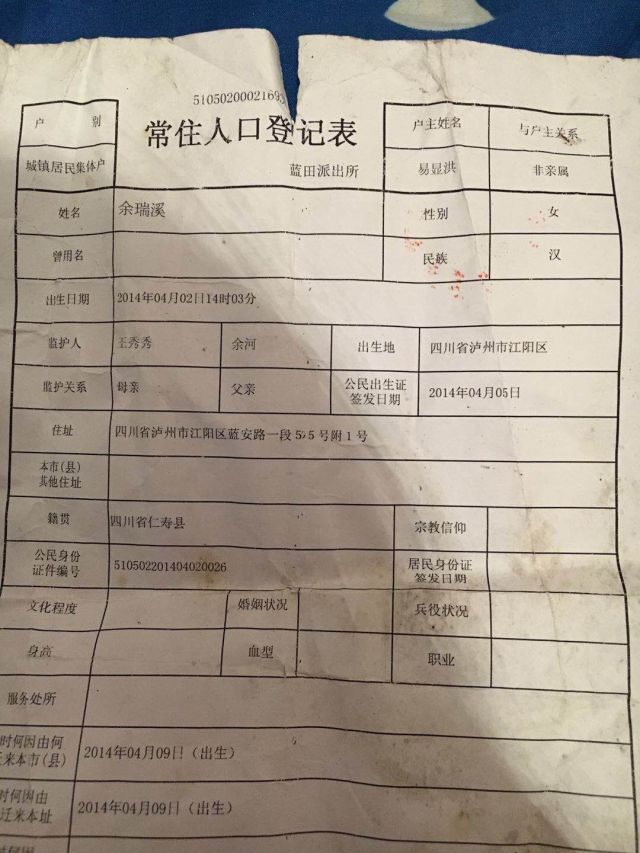 51050200021693
户别
常住人口登记表
户主姓名
与户主关系
城镇居民集体户
蓝田派出所
易显洪
非亲属
姓名
余瑞溪
性别
女
曾用名
民族
汉
出生日期
2014年04月02日14时03分
监护人
王秀秀
余河
出生地
四川省泸州市江阳区
监护关系
母亲
父亲
公民出生证
签发日期
2014年04月05日
住址
四川省泸州市江阳区蓝安路一段55号附1号
本市(县)
其他住址
籍贯
四川省仁寿县
宗教信仰
公民身份
证件编号
510502201404020026
居民身份证
签发日期
文化程度
婚姻状况
兵役状况
身高
血型
职业
服务处所
时何因由何
迁来本市(县)
2014年04月09日（出生）
时何因由
迁来本址
2014年04月09日（出生）